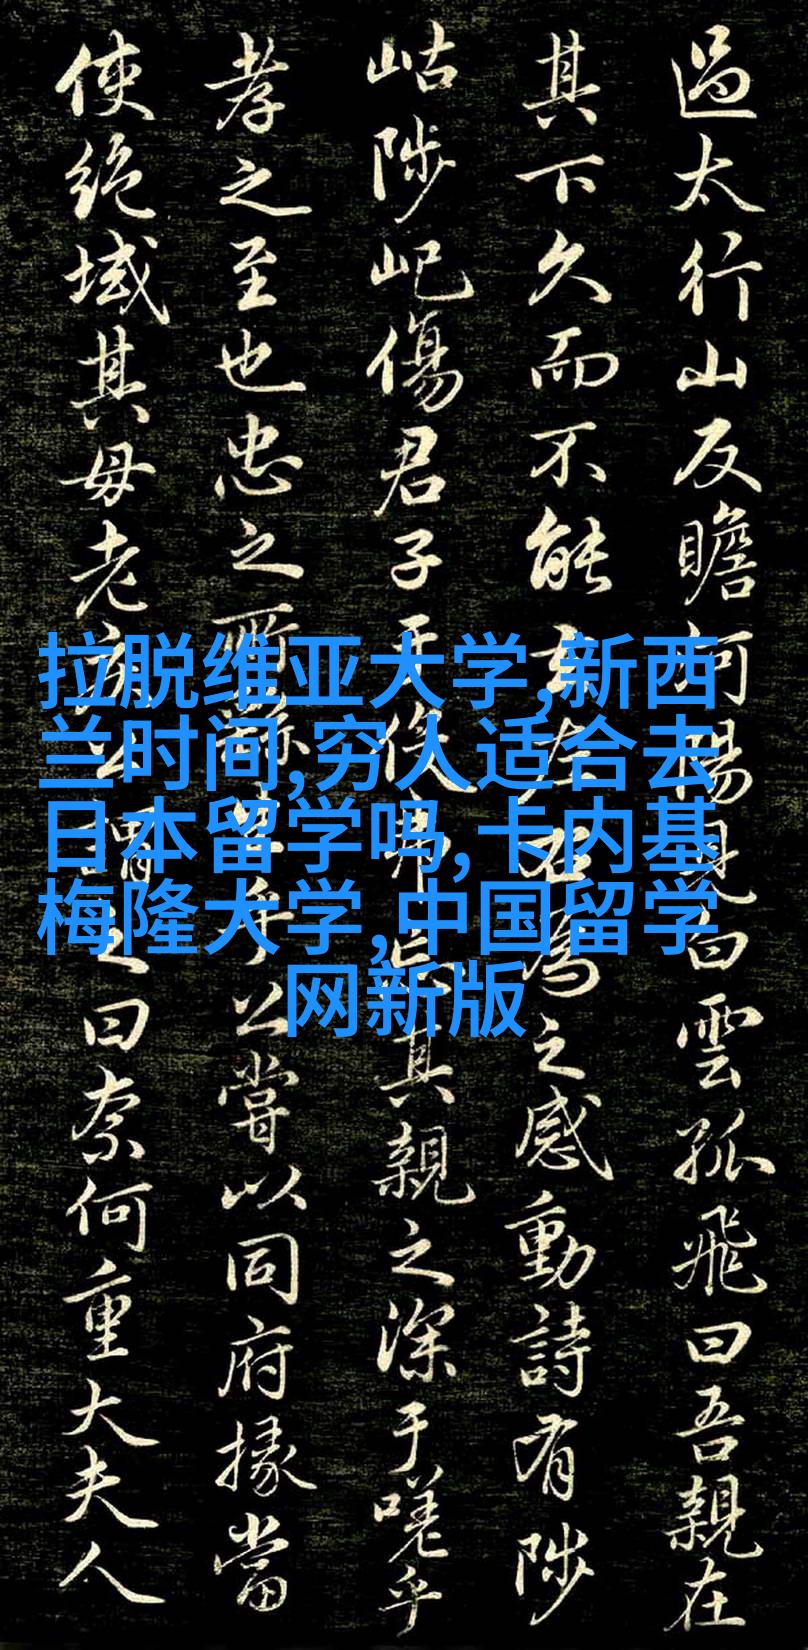 過太行山反瞻河陽見白雲孤飛曰吾親在
其下久而不能去左右為之感動詩有陟
岵陟屺傷君子于役弗忘其親之深于嗟乎
孝之至也忠之所繇生乎公嘗以同府掾當
使絕域其母老疾公謂之曰奈何重大夫人
拉脱维亚大学,新西
兰时间,穷人适合去
日本留学吗,卡内基
梅隆大学,中国留学
网新版